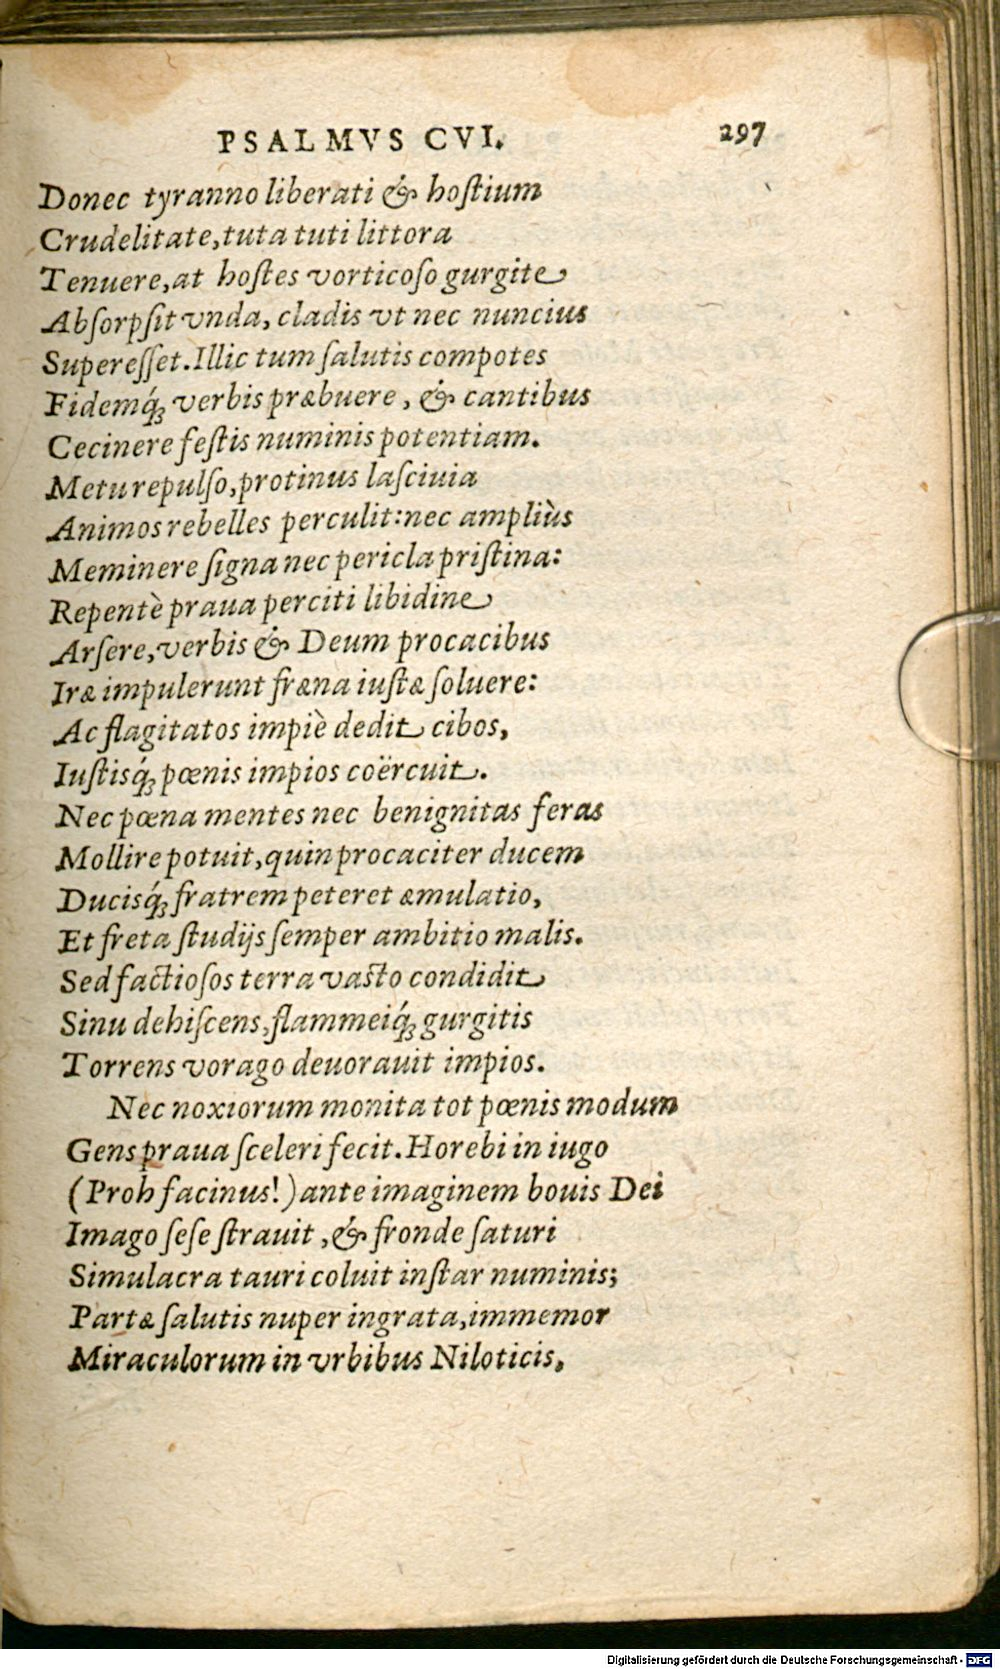 PSALMVS CVI. 297
Donec tyranno liberati & hoſtium
Crudelitate, tuta tuti littora
Tenuere, at hoſtes vorticoſo gurgite
Abſorpſit vnda, cladis vt nec nuncius
Supereſſet. Illic tum ſalutis compotes
Fidemq́; verbis præbuere, & cantibus
Cecinere feſtis numinis potentiam.
Metu repulſo, protinus laſciuia
Animos rebelles perculit: nec ampliùs
Meminere ſigna nec pericla priſtina:
Repentè praua perciti libidine
Arſere, verbis & Deum procacibus
Iræ impulerunt fræna iuſtæ ſoluere:
Ac flagitatos impiè dedit cibos,
Iuſtisq́; pœnis impios coërcuit.
Nec pœna mentes nec benignitas feras
Mollire potuit, quin procaciter ducem
Ducisq́; fratrem peteret æmulatio,
Et freta ſtudijs ſemper ambitio malis.
Sed factioſos terra vaſto condidit
Sinu dehiſcens, flammeiq́; gurgitis
Torrens vorago deuorauit impios.
Nec noxiorum monita tot pœnis modum
Gens praua ſceleri fecit. Horebi in iugo
(Proh facinus!) ante imaginem bouis Dei
Imago ſeſe ſtrauit, & fronde ſaturi
Simulacra tauri coluit inſtar numinis;
Partæ ſalutis nuper ingrata, immemor
Miraculorum in vrbibus Niloticis,
Digitalisierung gefördert durch die Deutsche Forschungsgemeinschaft - DFG